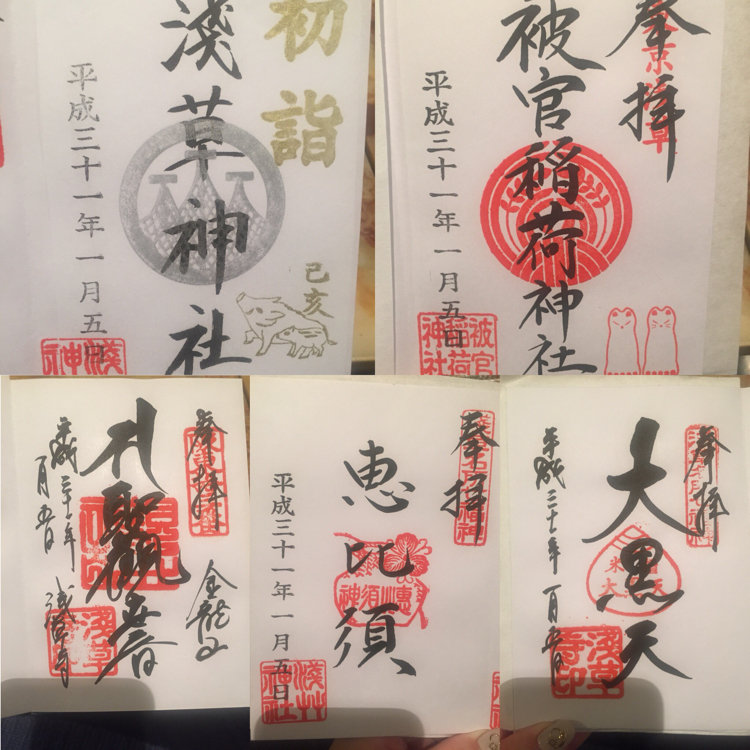 初詣
淺草神社
平成三十一年一月五日
己亥
淺
神
奉拝
東京浅草
被官稲荷神社
平成三十一年一月五日
被官
稲荷
神社
奉拝
金龍山
聖観音
平成三十一年
一月五日
浅草寺
浅草
奉拝
恵比須
平成三十一年一月五日
浅草
神社
奉拝
大黒天
平成三十一年一月五日
浅草
寺印